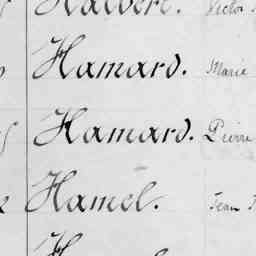 Halbert. Victor
Hamard. Marie
Hamard. Pierre
Hamel. Jean